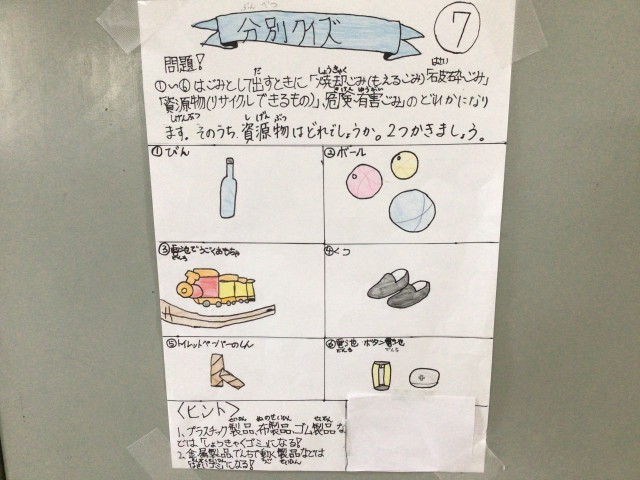 分別クイズ
⑦
問題!
①〜⑥はごみとして出すときに「焼却ごみ(もえるごみ)破砕ごみ」
「資源物(リサイクルできるもの)」、「危険・有害ごみ」のどれかになり
ます。そのうち、資源物はどれでしょうか。2つかきましょう。
①びん
②ボール
③電池でうごくおもちゃ
④くつ
⑤トイレットペーパーのしん
⑥電池 ボタン電池
〈ヒント〉
1、プラスチック製品、布製品、ゴム製品な
どは、「しょうきゃくゴミ」になる!
2、金属製品、でんちで動く製品などは
になる!